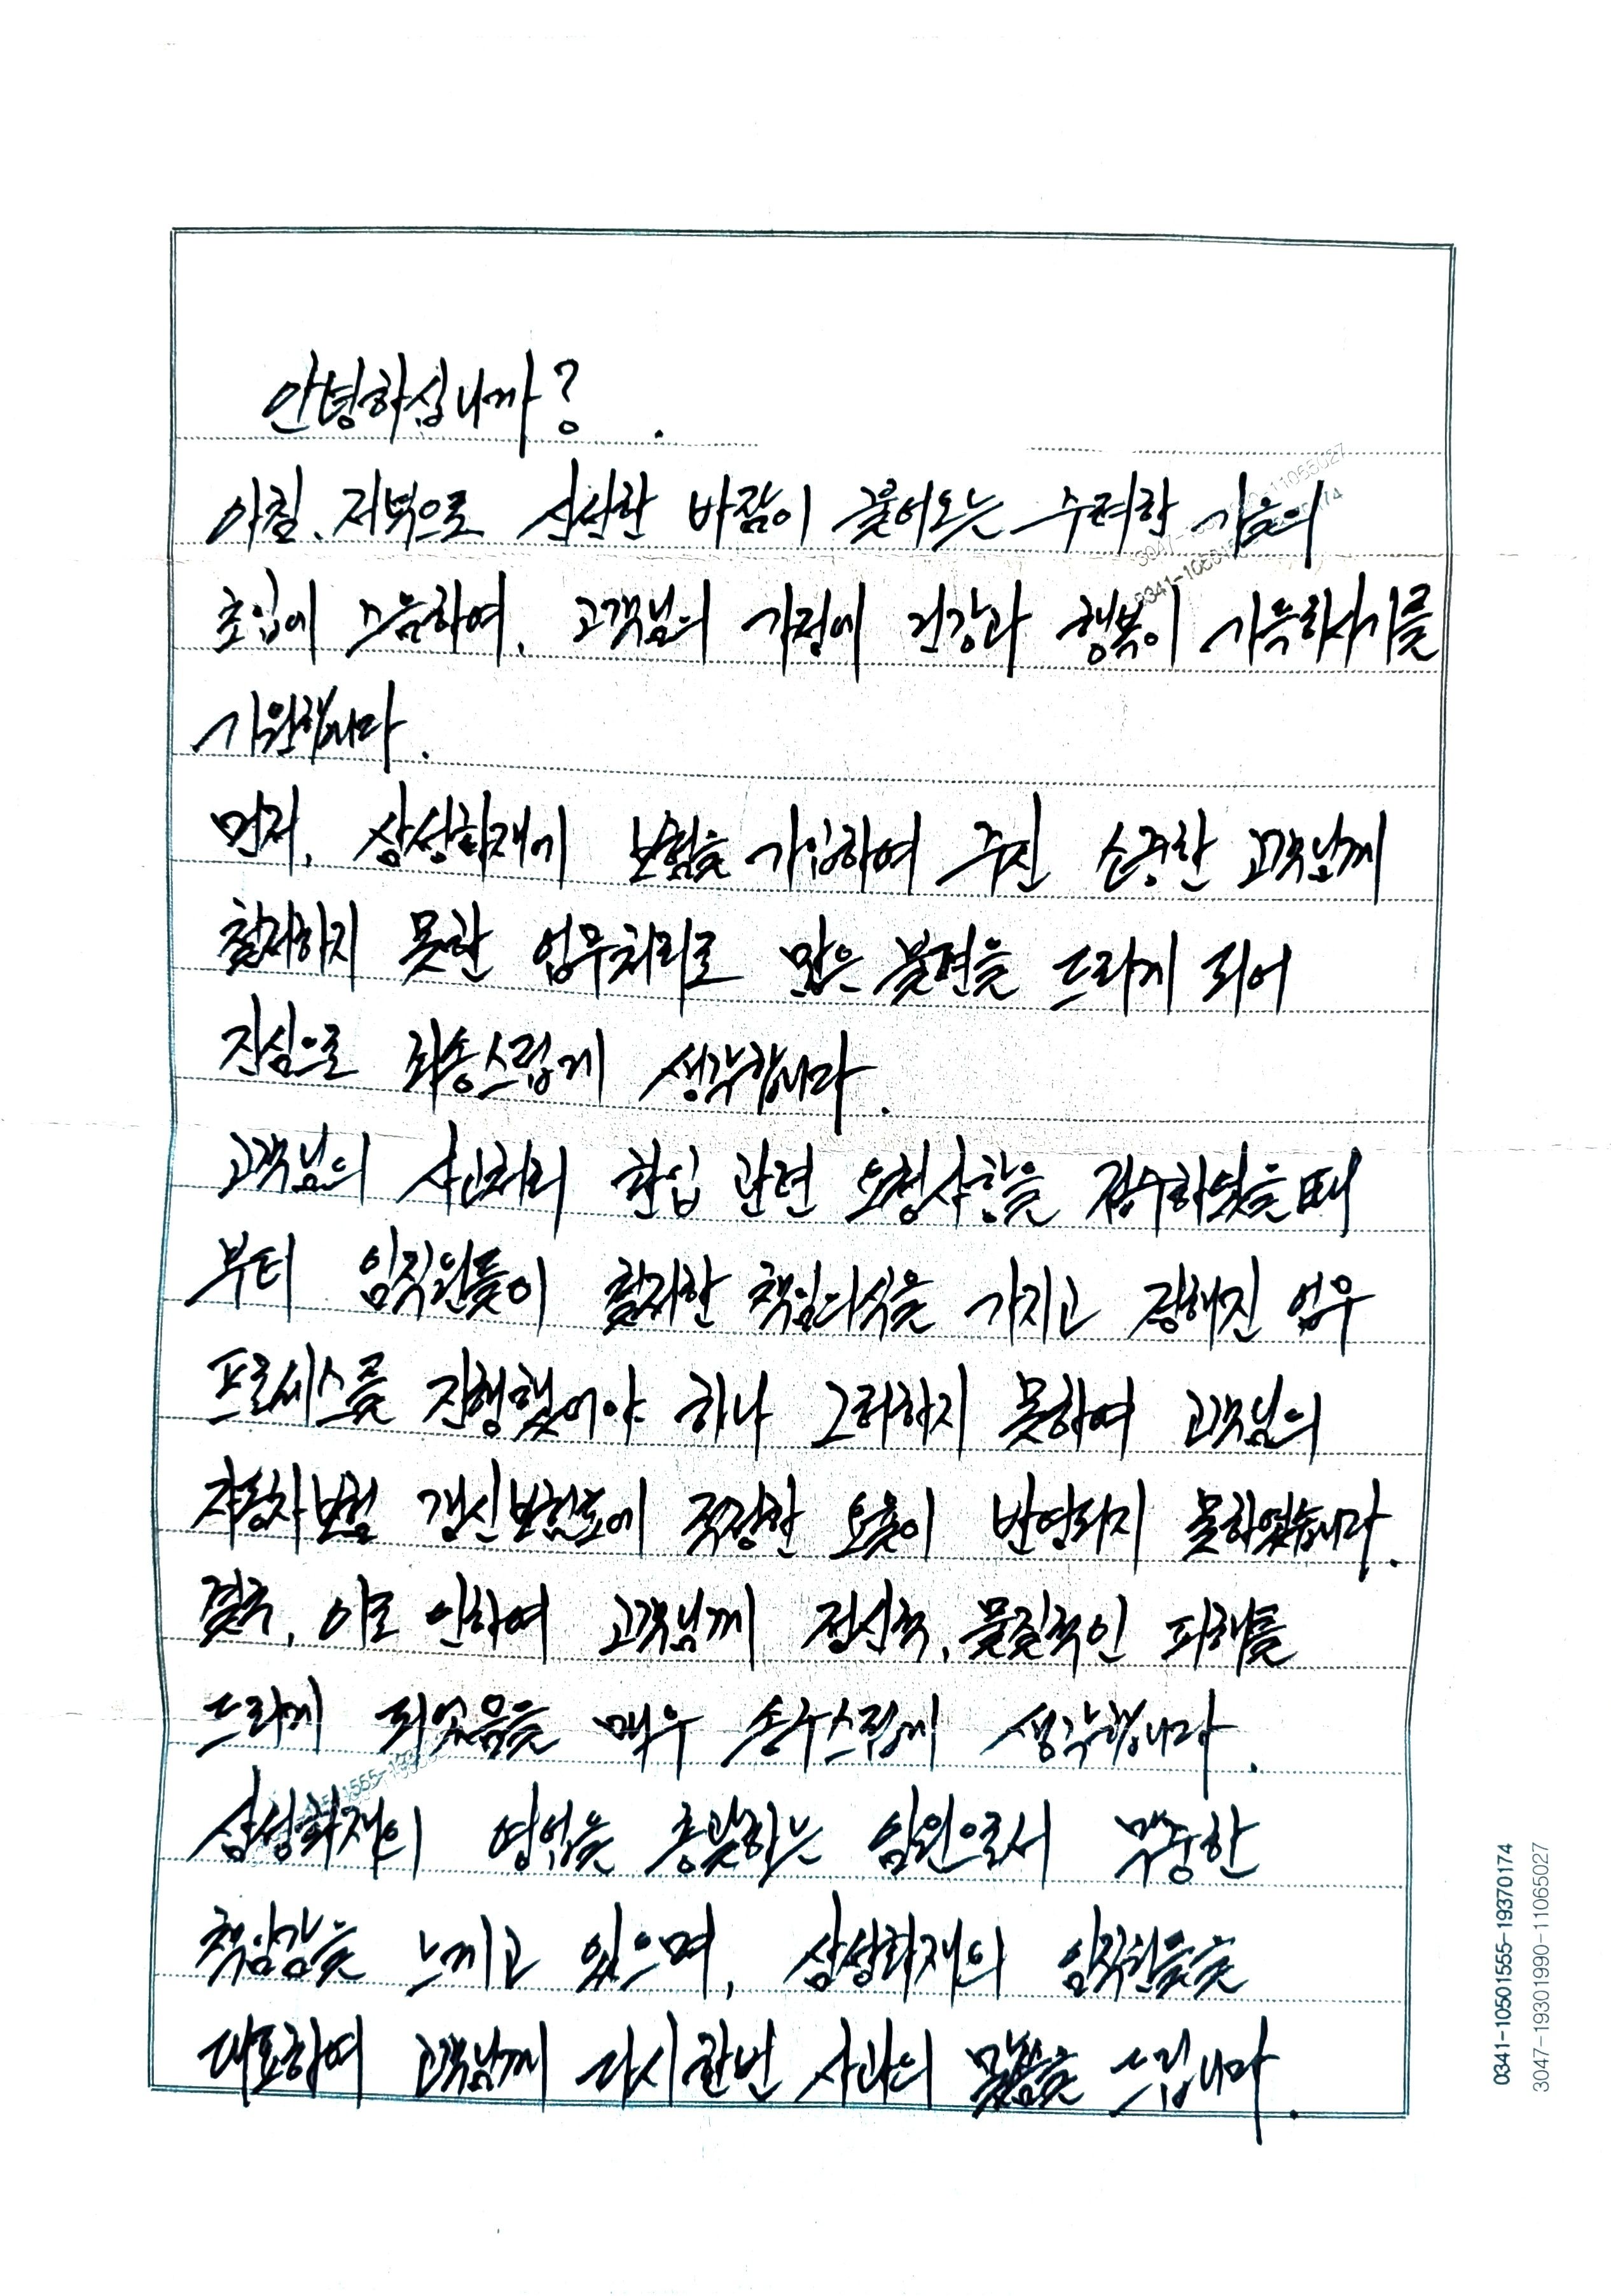 안녕하십니까?
아침, 저녁으로 선선한 바람이 불어오는 수려한 가을의
초입에 즈음하여, 고객님의 가정에 건강과 행복이 가득하시기를
기원합니다.
먼저, 삼성화재에 보험을 가입하여 주신 소중한 고객님께
철저하지 못한 업무처리로 많은 불편을 드리게 되어
진심으로 죄송스럽게 생각합니다.
고객님의 사고처리 환입 관련 요청사항을 접수하였을 때
부터 임직원들이 철저한 책임의식을 가지고 정해진 업무
프로세스를 진행했어야 하나 그러하지 못하여 고객님의
자동차보험 갱신보험료에 적정한 요율이 반영되지 못하였습니다.
결국, 이로 인하여 고객님께 정신적, 물질적인 피해를
드리게 되었음을 매우 송구스럽게 생각합니다.
삼성화재의 영업을 총괄하는 임원으로서 막중한
책임감을 느끼고 있으며, 삼성화재의 임직원들을
대표하여 고객님께 다시한번 사과의 말씀을 드립니다.
0341-10501555-19370174
3047-19301990-11065027